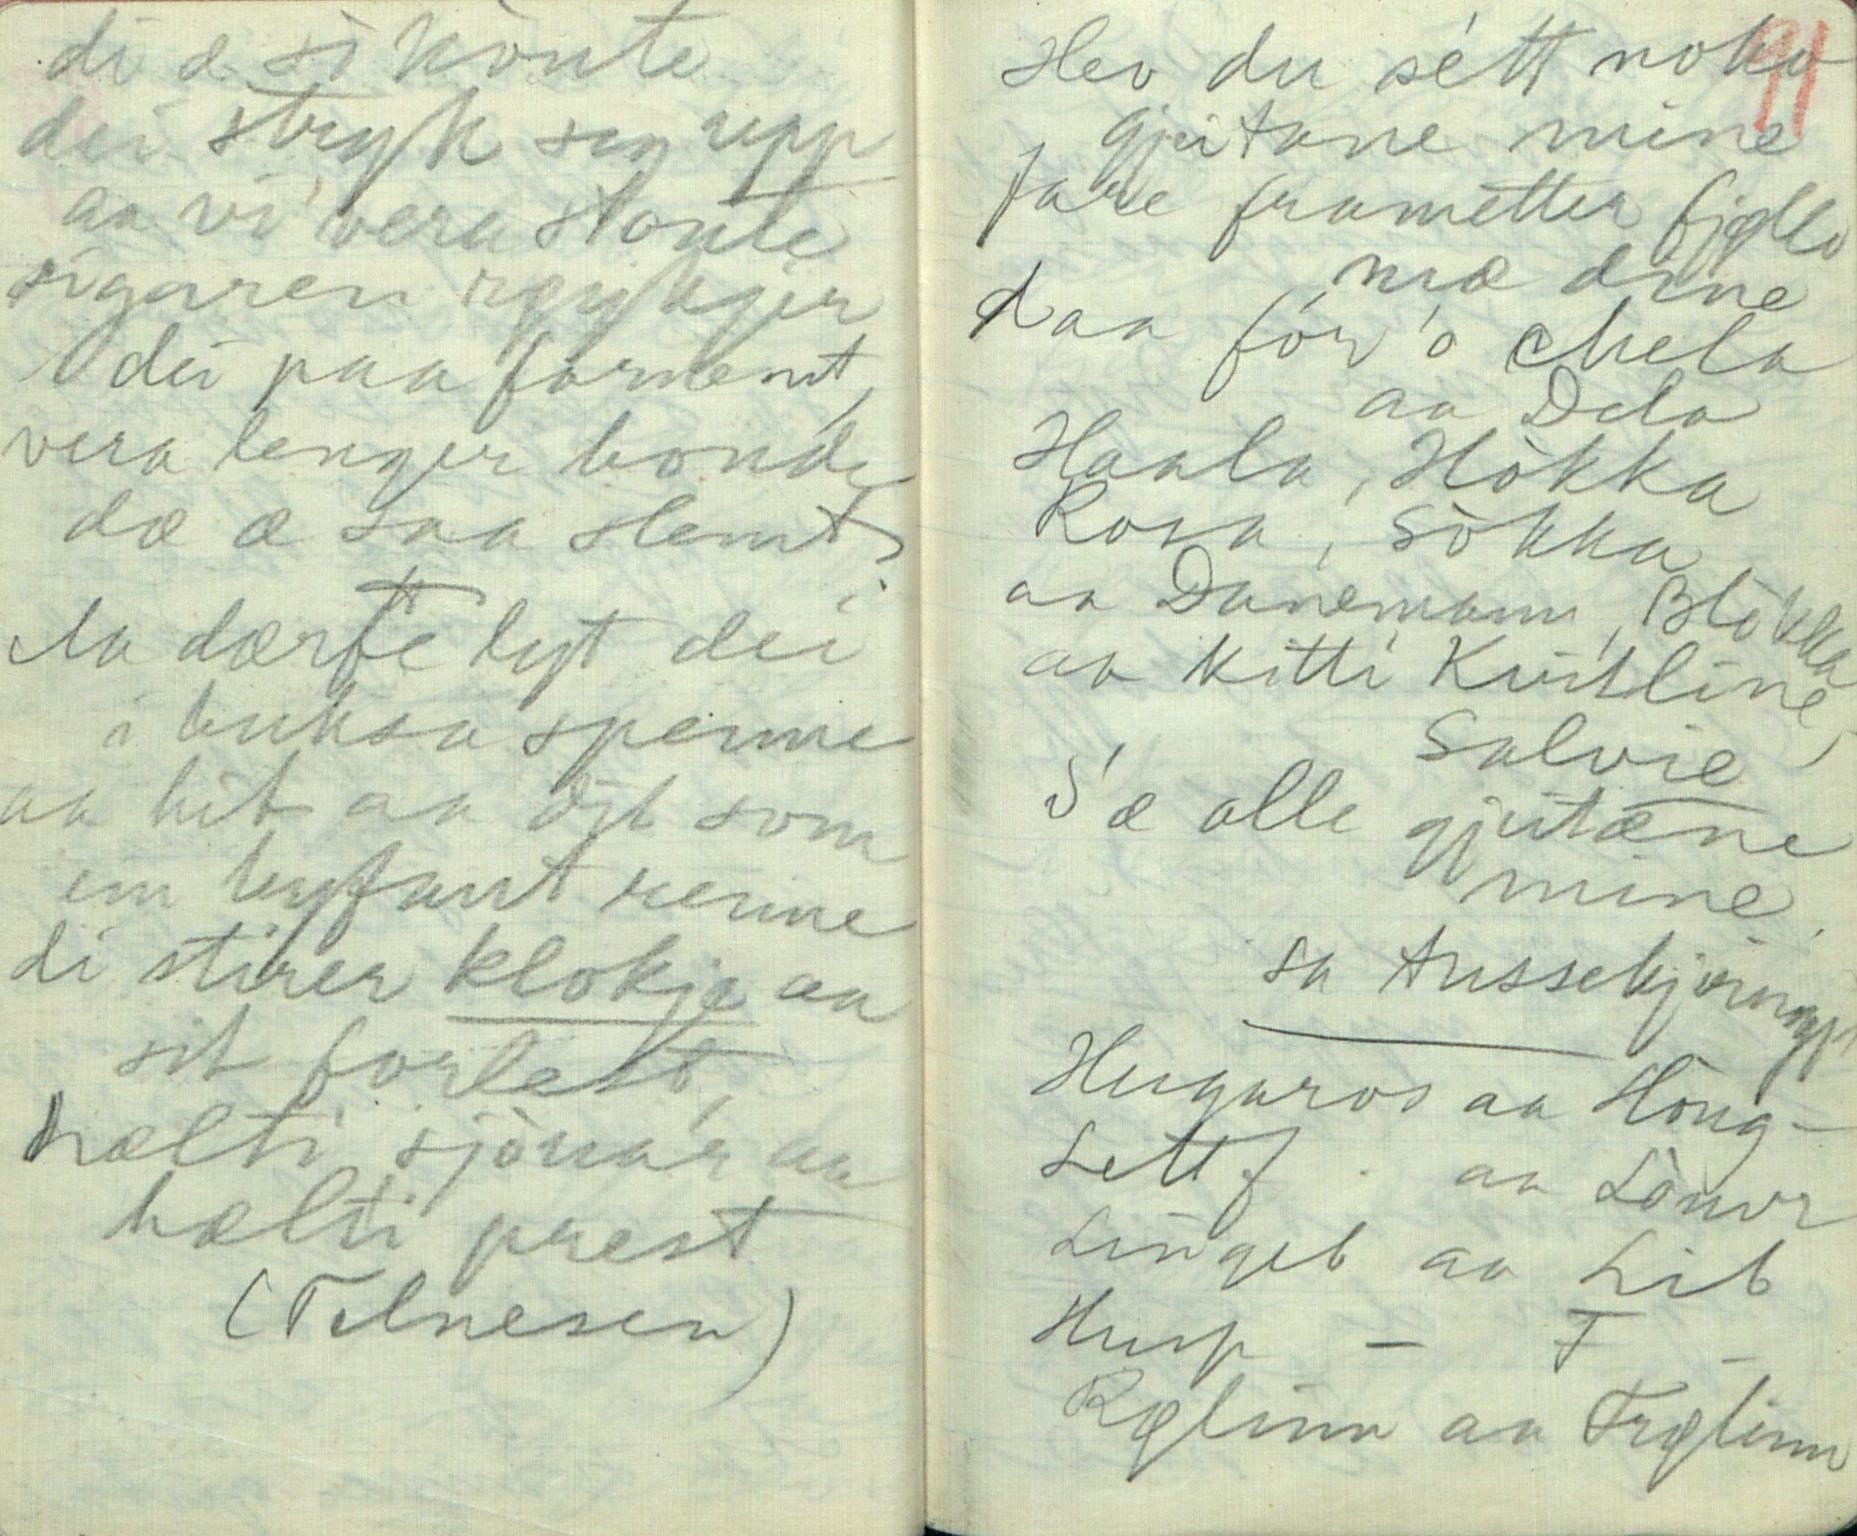 di æ si konte
dei stryk seg upp
aa vi' vera stonte
sigaren røykjer
dei paa fornemt,
vera lenger bonde
dæ æ saa slemt,
Aa dærfe lyt dei
i buksa spenne
aa hit aa dit som
ein byfant renne
di stirer klokje aa
sit forlest,
hælti sjòvar aa
hælti prest
(Telnesen)
91
Hev du sétt noko
gjeitane mine
fare frametter fjøllo
mæ dine
daa fór'o Mela
aa Dela
Haala, Hòkka
Rosa, Sòkka
aa Danemann, Blòkka
aa Kitti Kvitline,
Salvie
S'æ alle gjeitæne
mine
sa tussekjøringji
Hugaros aa Houg-
Lettf. aa Lònvr
Lingeb aa Lib
Husp — F —
Rølinn aa Frølinn